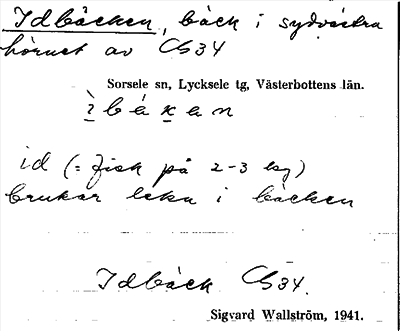 Idbäcken, bäck i sydvästra
hörnet av C34
Sorsele sn, Lycksele tg, Västerbottens län.
ì b ä́ k a n
id (= fisk på 2-3 kg)
brukar leka i bäcken
Idbäck C34.
Sigvard Wallström, 1941.